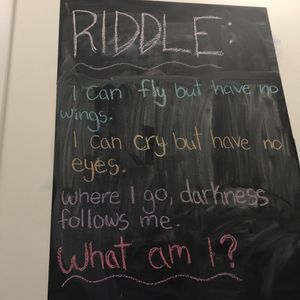 RIDDLE:
I can fly but have no
wings.
I can cry but have no
eyes.
where I go, darkness
follows me.
What am I?